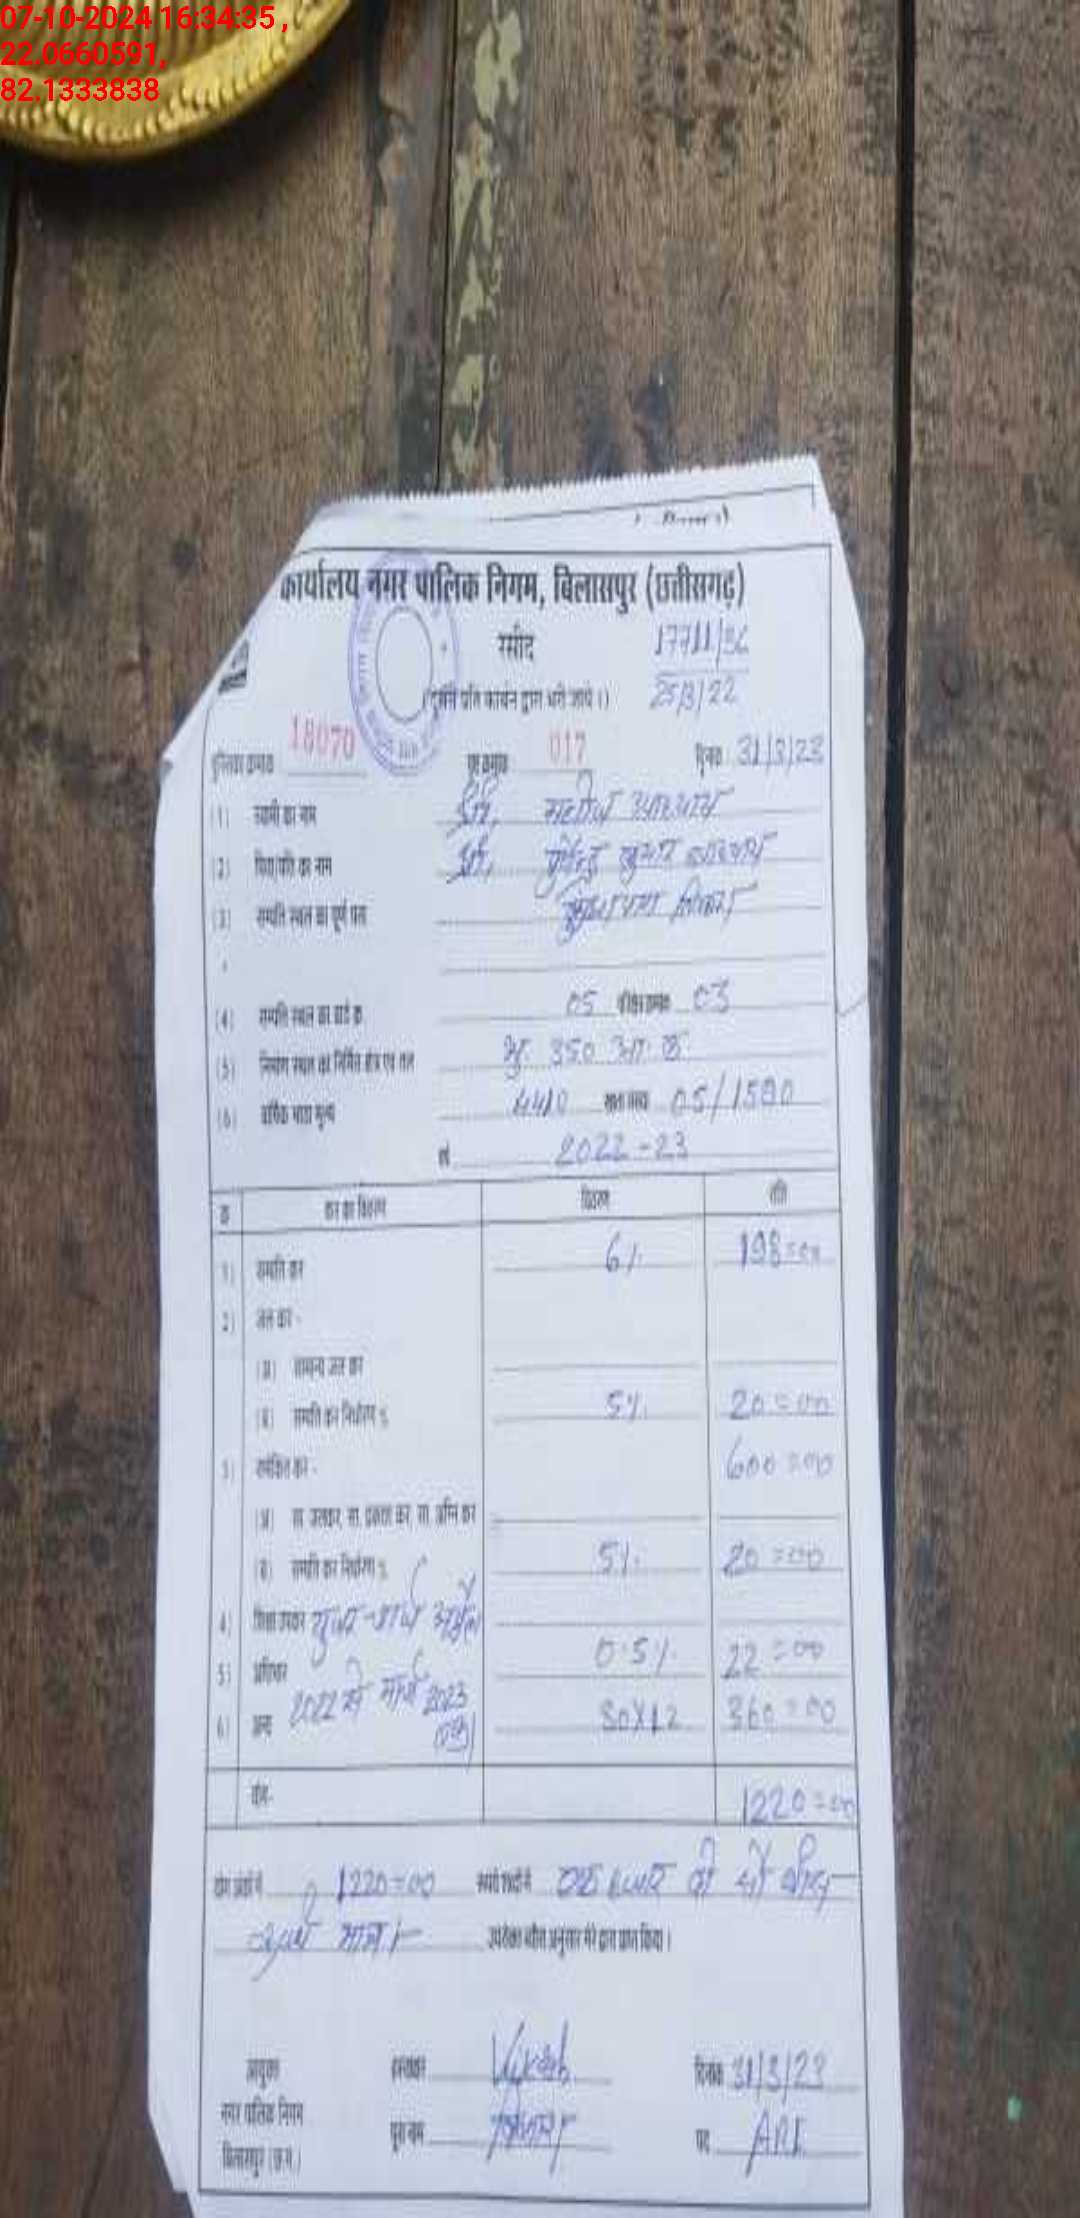 07-10-2024 16:34:35 ,
22.0660591,
82.1333838
कार्यालय नगर पालिक निगम, बिलासपुर (छत्तीसगढ़)
रसीद
17711/96
25/3/22
(दूसरी प्रति कार्बन द्वारा भरी जाये।)
पुस्तिका क्रमांक 18070 पृष्ठ क्रमांक 017 दिनांक 31/3/23
(1) स्वामी का नाम श्री.
(2) पिता/पति का नाम श्री. कुमार
(3) सम्पत्ति स्थल का पूर्ण पता
(4) सम्पत्ति स्थल का वार्ड क्र. 05 परिक्षेत्र क्रमांक 03
(5) निर्माण स्थल का निर्मित क्षेत्र एवं तल भू. 350
(6) वार्षिक भाड़ा मूल्य 4410 खाता संख्या 05/1580
वर्ष 2022-23
क्र कर का विवरण विवरण राशि
1) सम्पत्ति कर 6% 198=00
2) जल कर -
(अ) सामान्य जल कर
(ब) सम्पत्ति कर निर्धारण % 5% 20=00
3) समेकित कर - 600=00
(अ) सा. जलकर, सा. प्रकाश कर, सा. अग्नि कर
(ब) सम्पत्ति कर निर्धारण % 5% 20=00
4) शिक्षा उपकर
5) अधिभार 0.5% 22=00
6) अन्य 2022 से मार्च 2023 तक 30X12 360=00
योग- 1220=00
योग अंकों में 1220=00 रूपये शब्दों में एक हजार दो सौ बीस
रूपये मात्र। उपरोक्त ब्यौरा अनुसार मेरे द्वारा प्राप्त किया।
आयुक्त हस्ताक्षर Vikash दिनांक 31/3/23
नगर पालिक निगम पूरा नाम विकास पद ARI
बिलासपुर (छ.ग.)